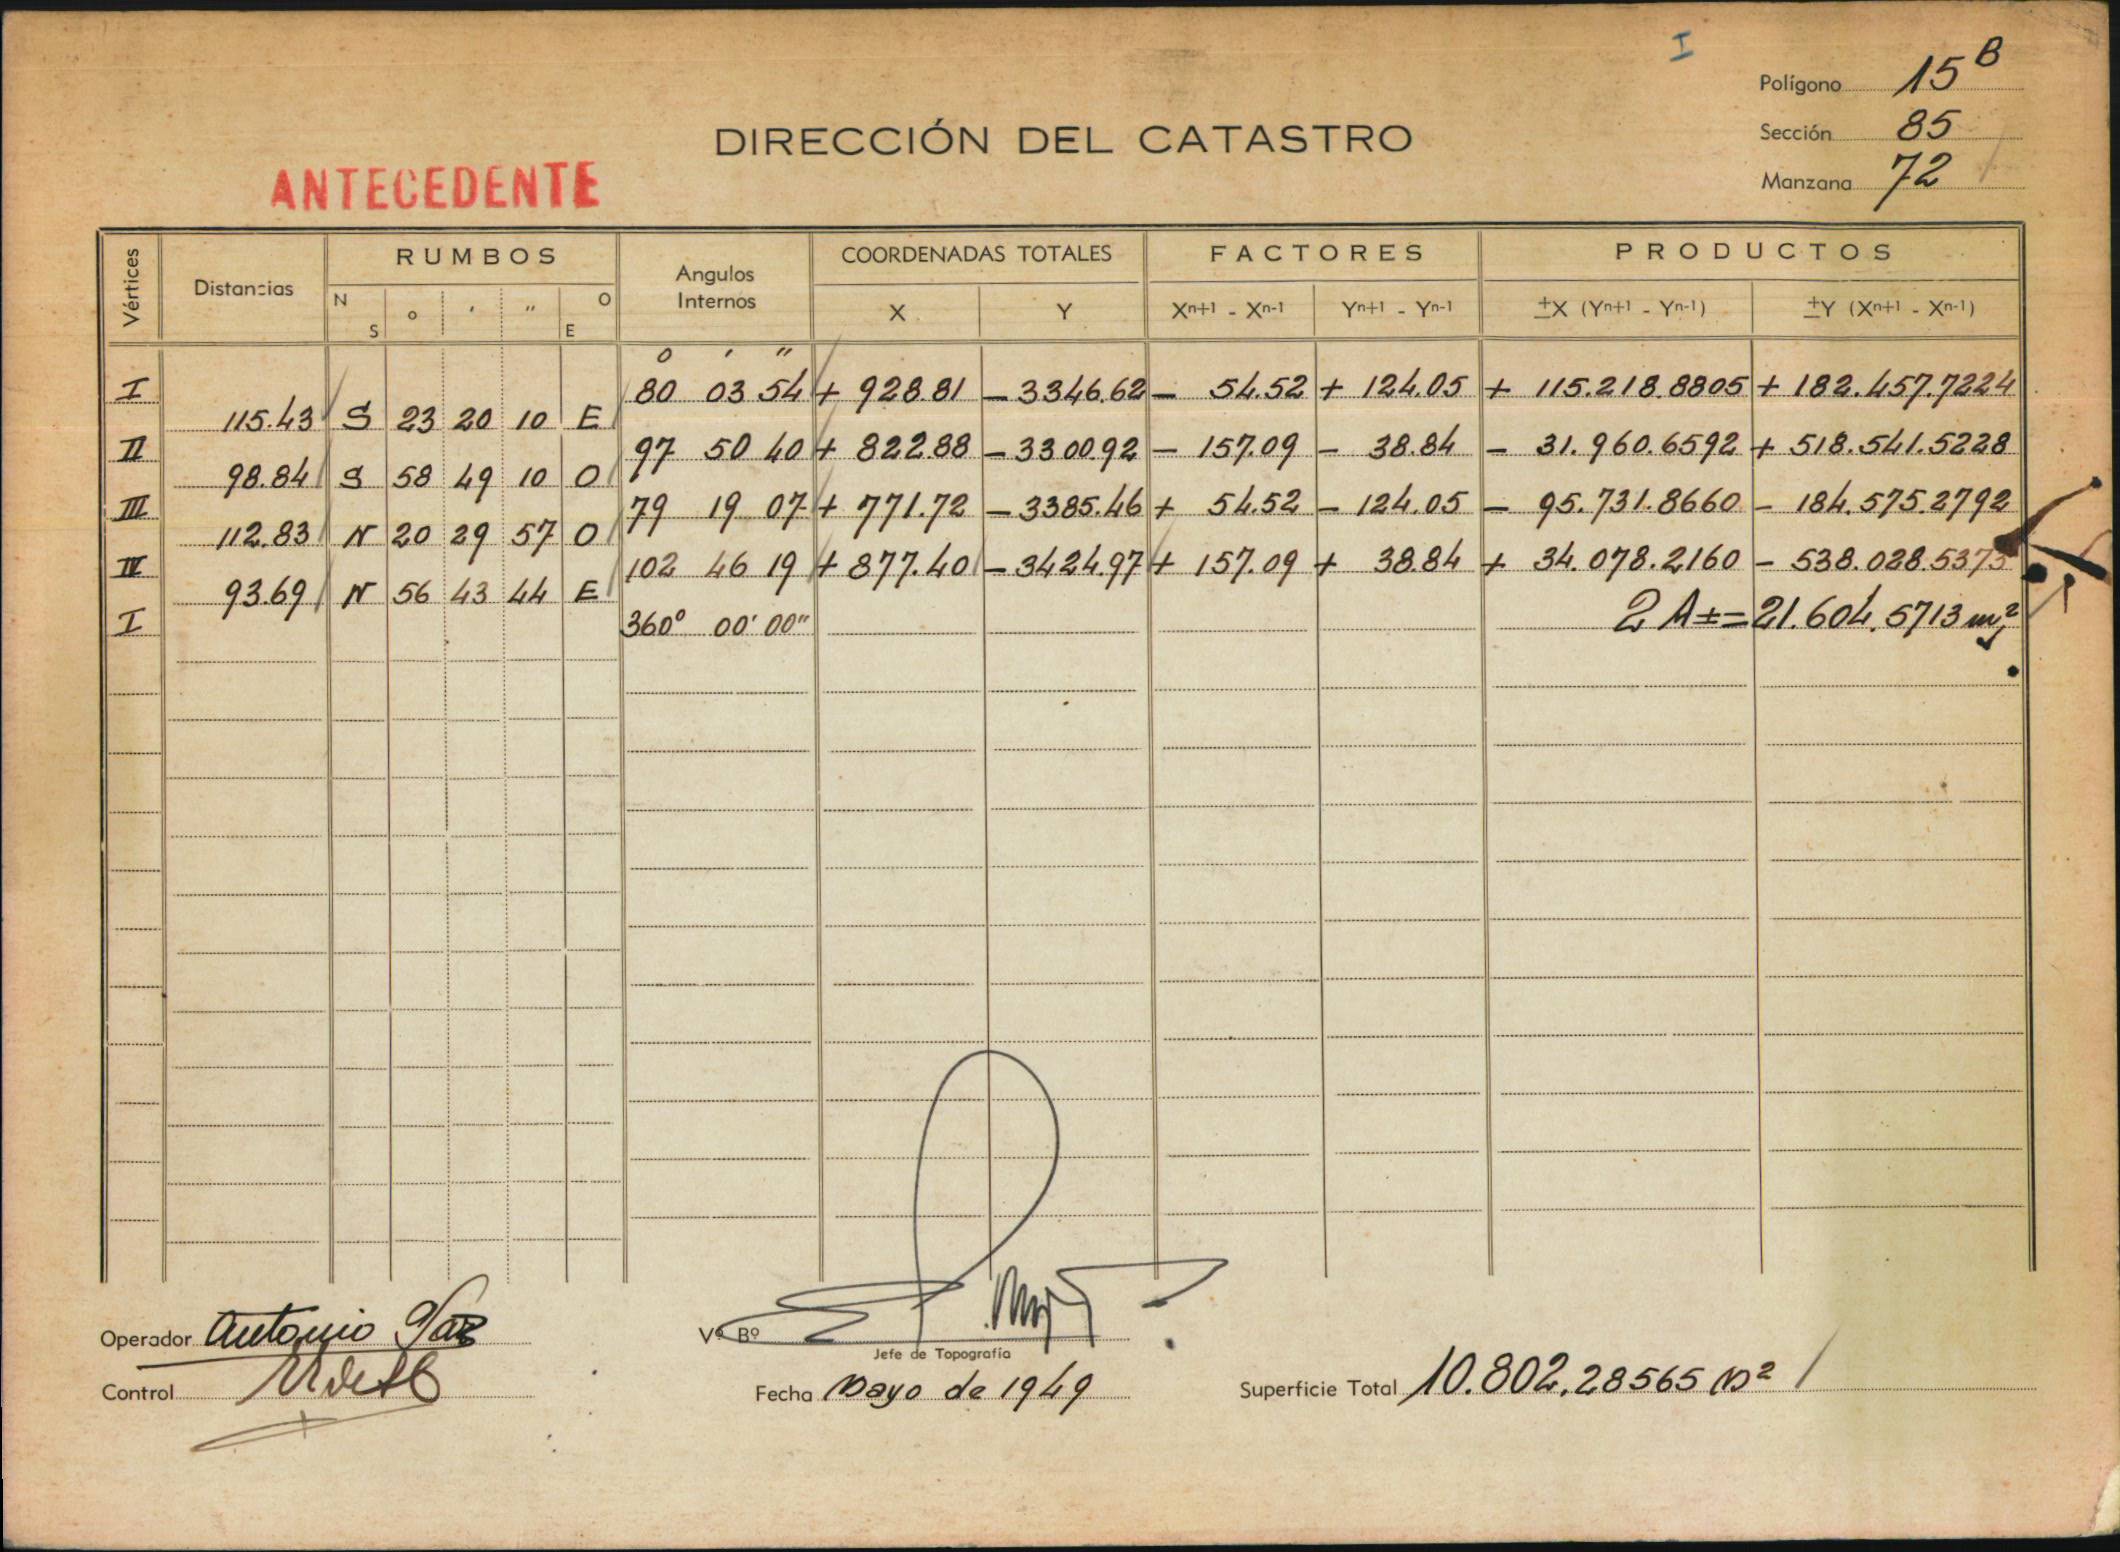 I
Polígono 15 B
Sección 85
Manzana 72
DIRECCIÓN DEL CATASTRO
ANTECEDENTE
Vértices Distancias RUMBOS Angulos Internos COORDENADAS TOTALES FACTORES PRODUCTOS
N S ° ' " O E X Y Xn+1 - Xn-1 Yn+1 - Yn-1 ±X (Yn+1 - Yn-1) ±Y (Xn+1 - Xn-1)
° ' "
I 80 03 54 + 928.81 - 3346.62 - 54.52 + 124.05 + 115.218.8805 + 182.457.7224
115.43 S 23 20 10 E
II 97 50 40 + 822.88 - 3300.92 - 157.09 - 38.84 - 31.960.6592 + 518.541.5228
98.84 S 58 49 10 O
III 79 19 07 + 771.72 - 3385.46 + 54.52 - 124.05 - 95.731.8660 - 184.575.2792
112.83 N 20 29 57 O
IV 102 46 19 + 877.40 - 3424.97 + 157.09 + 38.84 + 34.078.2160 - 538.028.5373
93.69 N 56 43 44 E
I 360° 00' 00" 2 A ± = 21.604.5713 m2
Operador Antonio
Vº Bº
Jefe de Topografía
Control
Fecha Mayo de 1949
Superficie Total 10.802.28565 m2